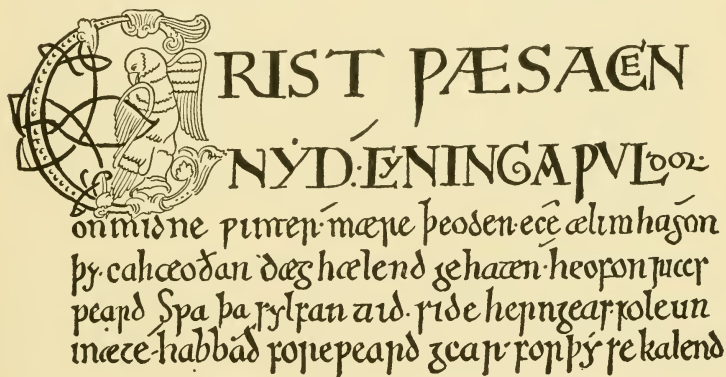 CRIST ǷÆSACEN
NẎD·CyNINGAǷVLdor·
onmidne ƿinter·mære þeoden·ece ælmihtig·on
þẏ·eahteoðan dæg hælend gehaten·heofonrices
ƿeard Sƿa þa sylfan tid·side herigeas·folcun
mæte·habbað foreƿeard gear·forþẏ se kalend